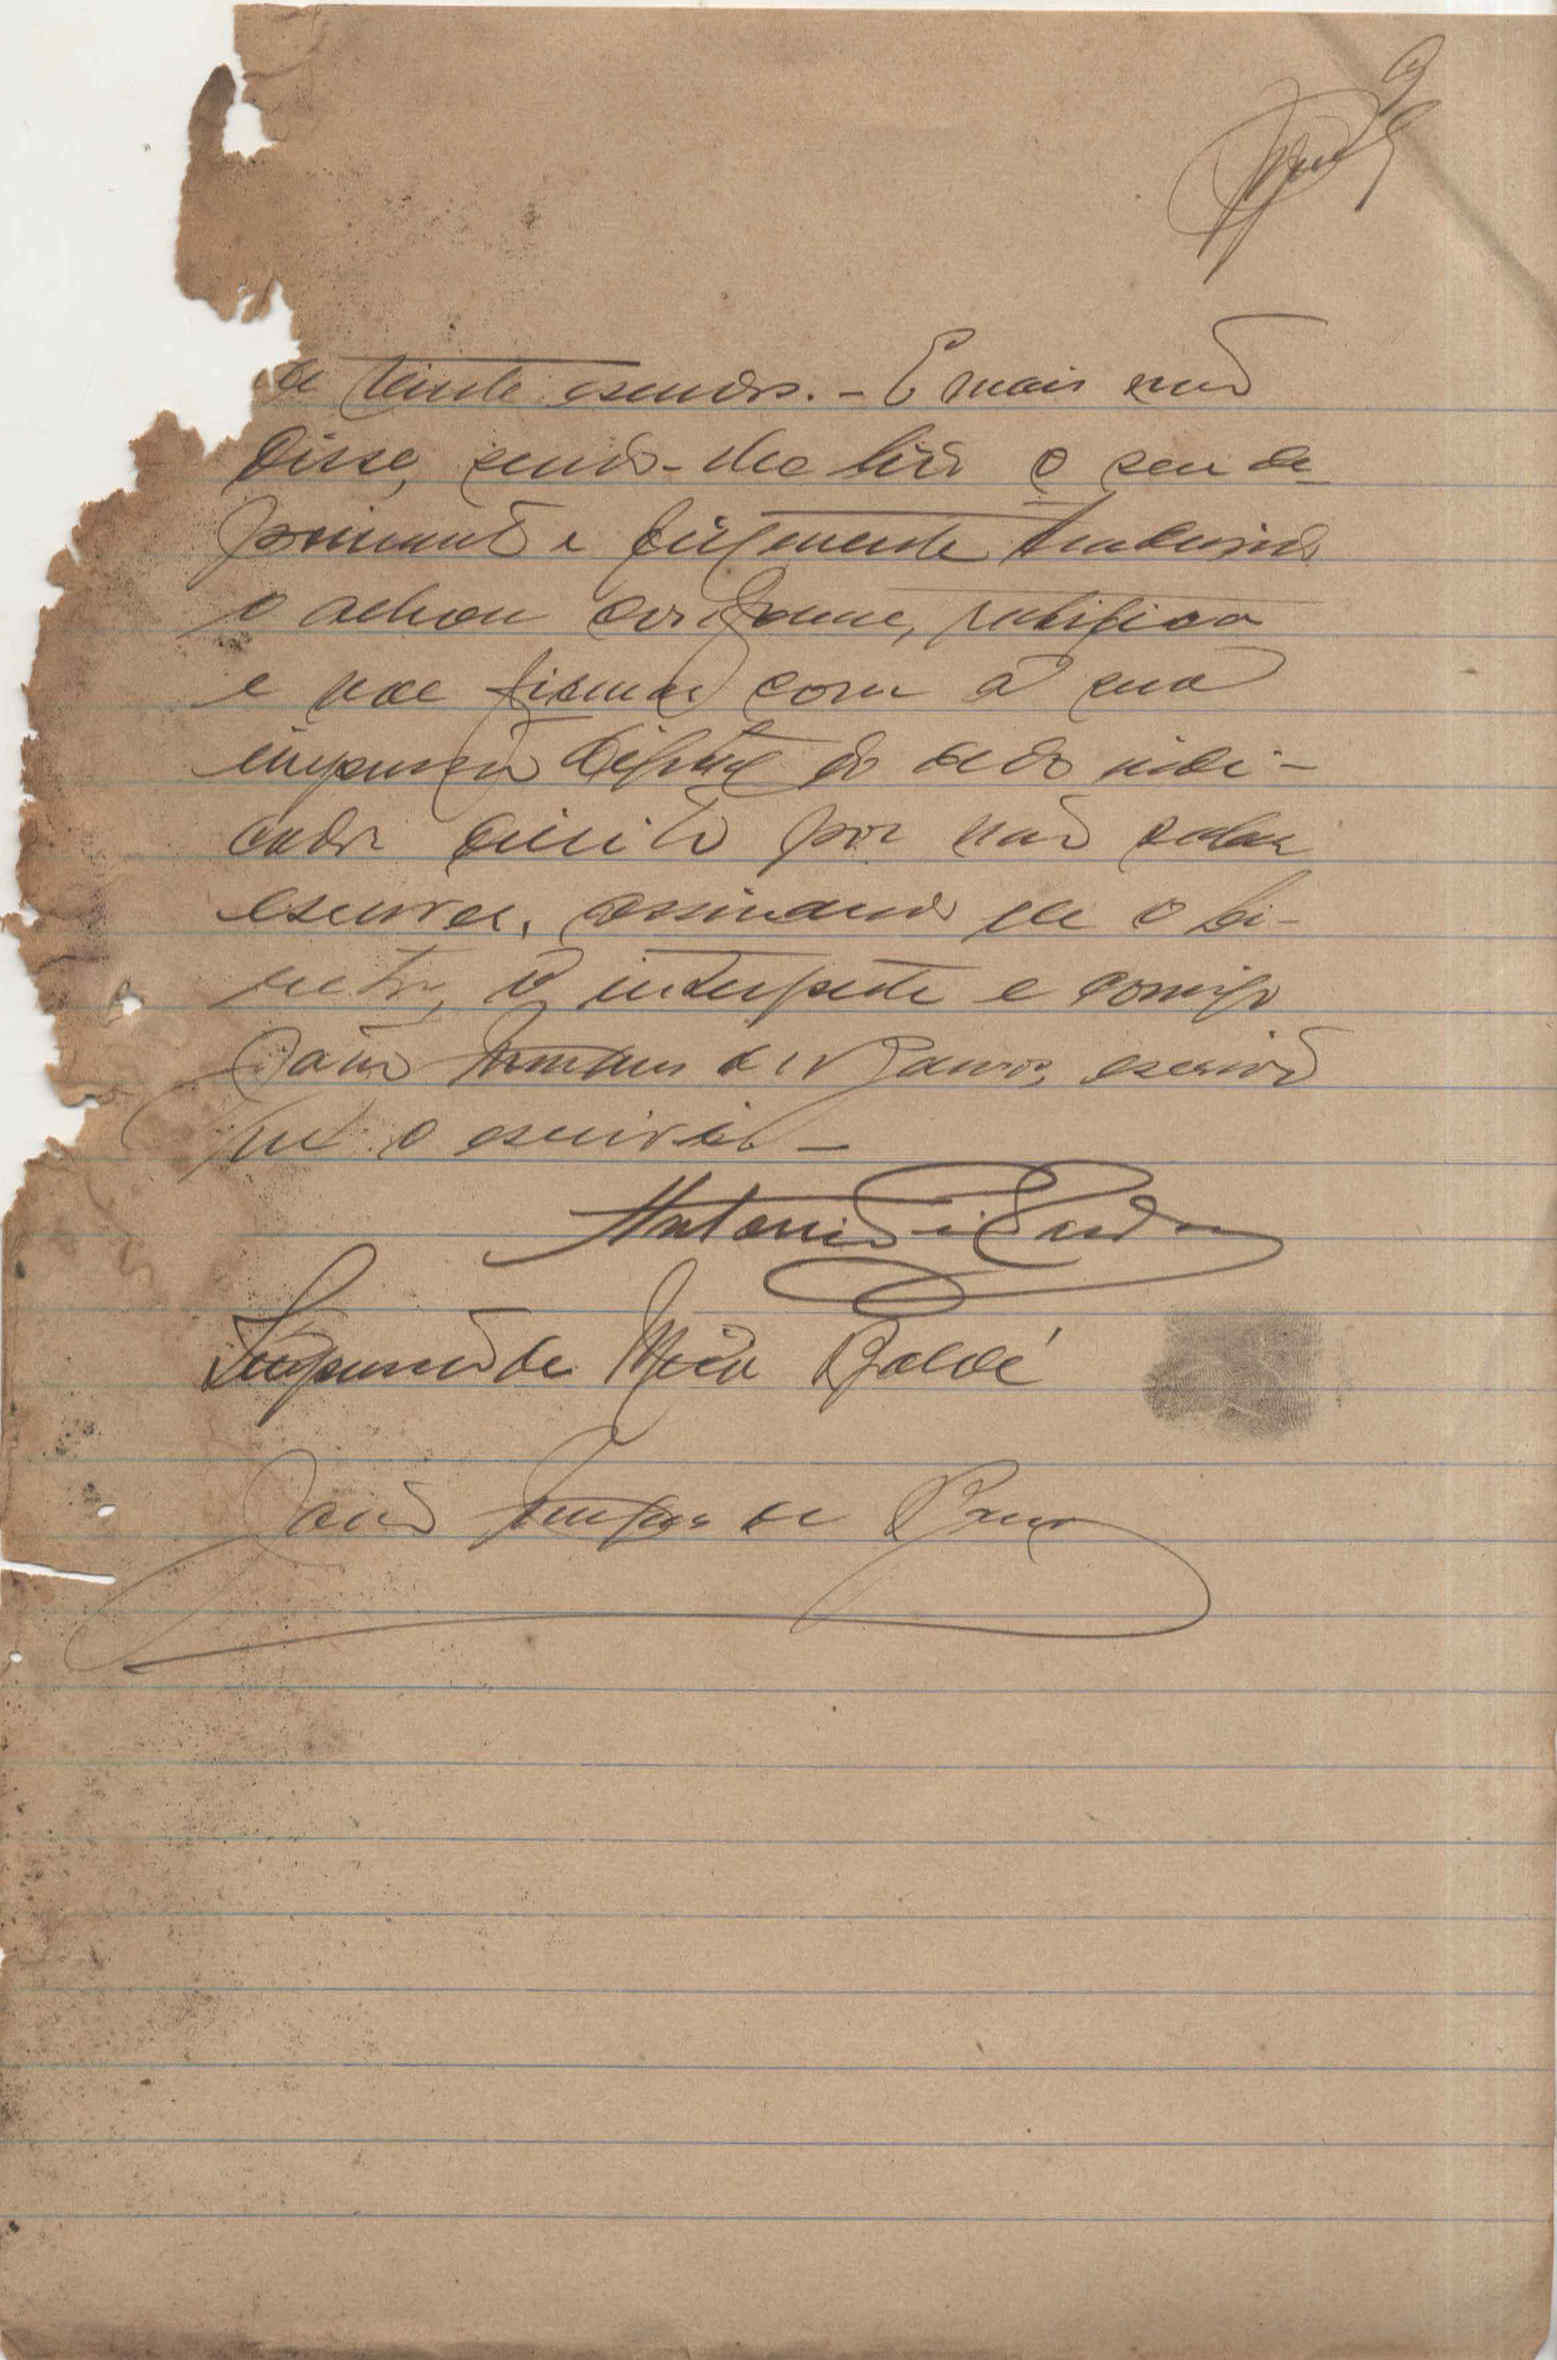 9
de vinte escudos. - E mais não
disse, sendo-lhe lido o seu de-
poimento e fielmente traduzido
o achou conforme, ratifica
e vae firmar com a sua
impressão digital do dedo indi-
cador direito por não saber
escrever, assinando ele o
o interprete e comigo
João de Barros, escrivão
que o escrevi. -
Antonio
Impressão de Baldé
João de